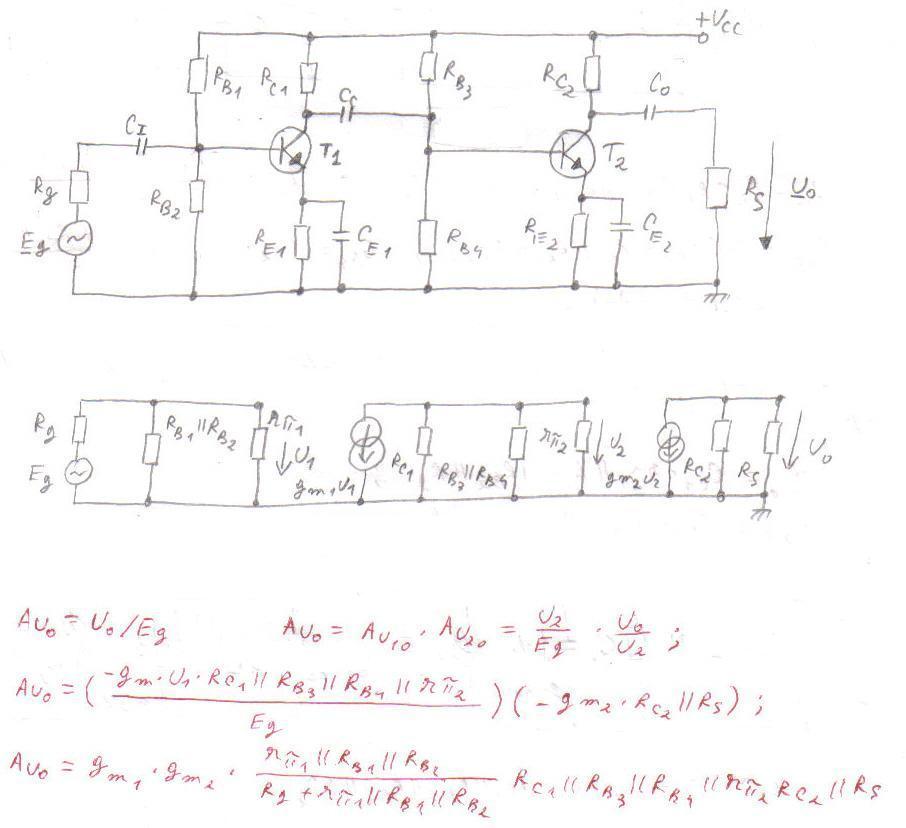 +Vcc
RB1
RC1
Cc
RB3
RC2
Co
CI
T1
T2
Rg
RB2
RS
Uo
Eg
RE1
CE1
RB4
RE2
CE2
Rg
RB1||RB2
rπ1
U1
rπ2
U2
Uo
Eg
gm1U1
RC1
RB3||RB4
gm2U2
RC2
RS
AUo = Uo/Eg AUo = AU1o · AU2o = U2/Eg · Uo/U2 ;
AUo = (-gm·U1·RC1||RB3||RB4||rπ2 / Eg) (-gm2·RC2||RS) ;
AUo = gm1·gm2· rπ1||RB1||RB2 / Rg+rπ1||RB1||RB2 RC1||RB3||RB4||rπ2 RC2||RS